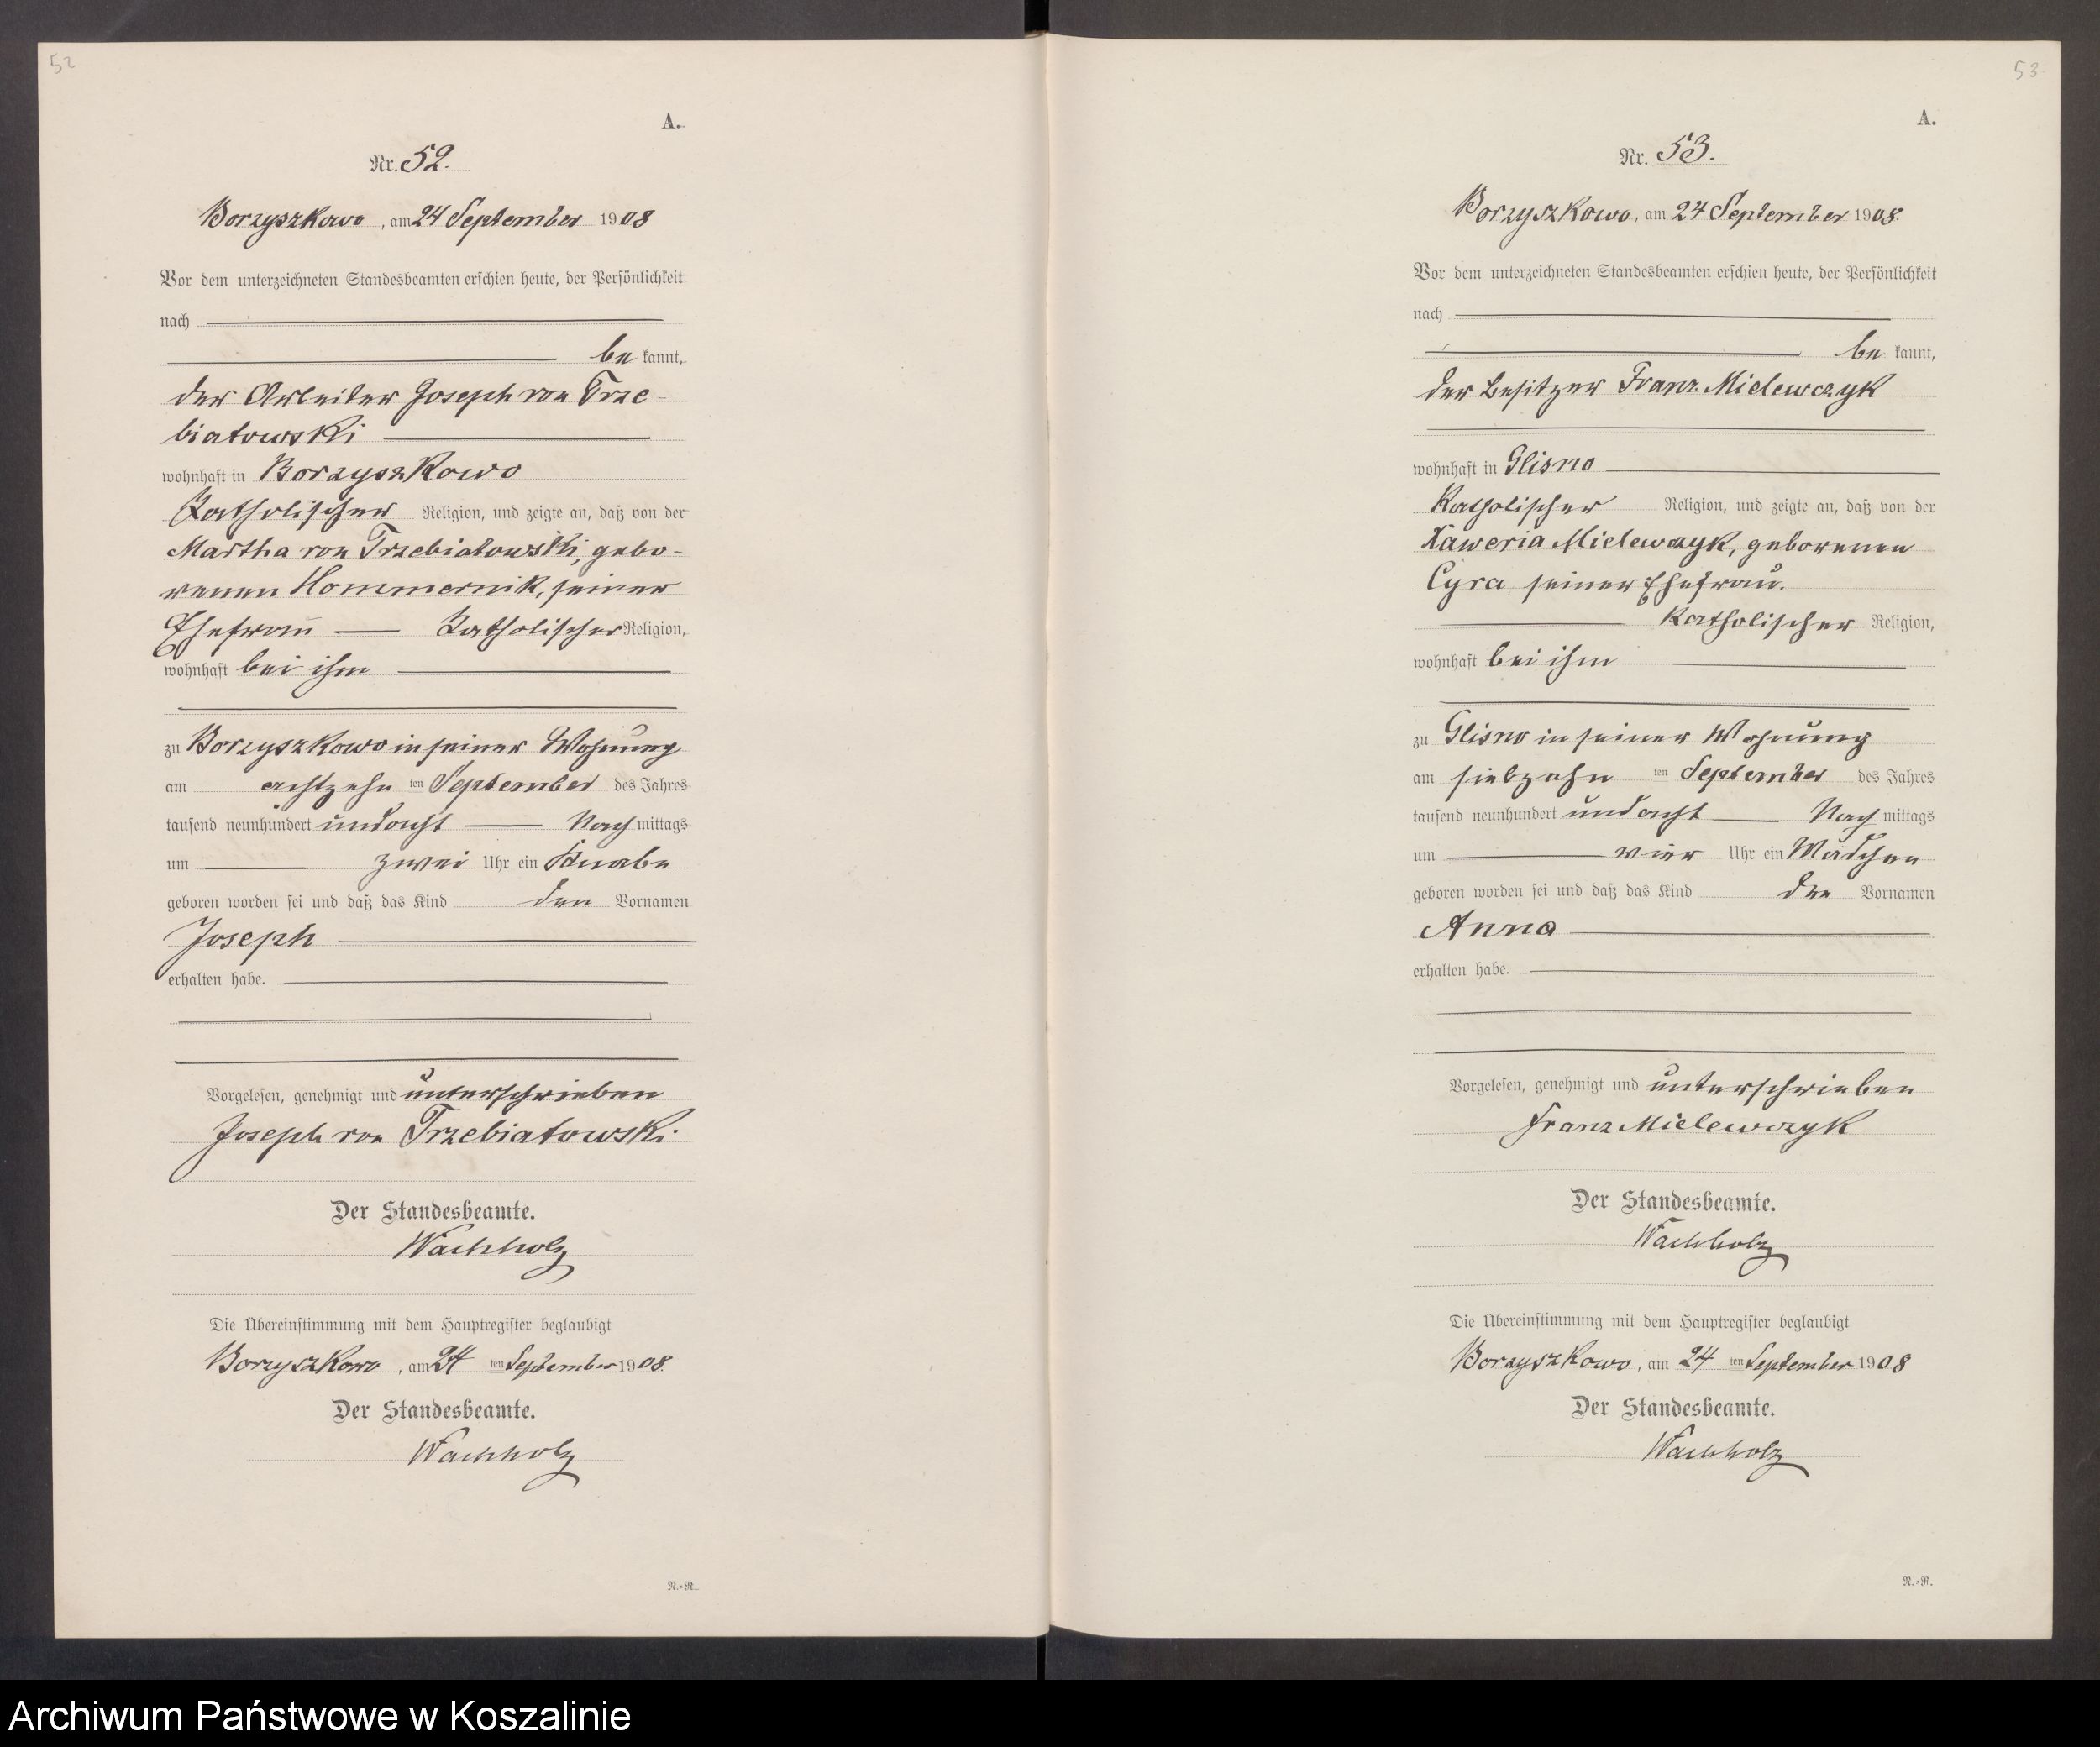 52
A.
Nr. 52.
Borzyszkowo, am 24 September 1908
Vor dem unterzeichneten Standesbeamten erschien heute, der Persönlichkeit
nach
be kannt,
der Arbeiter Joseph von Trze-
biatowski
wohnhaft in Borzyszkowo
Katholischer Religion, und zeigte an, daß von der
Martha von Trzebiatowski, gebo-
renen Hommernik, seiner
Ehefrau Katholischer Religion,
wohnhaft bei ihm
zu Borzyszkowo in seiner Wohnung
am achtzehn ten September des Jahres
tausend neunhundert undacht Nach mittags
um zwei Uhr ein Knabe
geboren worden sei und daß das Kind den Vornamen
Joseph
erhalten habe.
Vorgelesen, genehmigt und unterschrieben
Joseph von Trzebiatowski.
Der Standesbeamte.
Wachholz
Die Übereinstimmung mit dem Hauptregister beglaubigt
Borzyszkowo, am 24 ten September 1908.
Der Standesbeamte.
Wachholz
N.=R.
53
A.
Nr. 53.
Borzyszkowo, am 24 September 1908.
Vor dem unterzeichneten Standesbeamten erschien heute, der Persönlichkeit
nach
be kannt,
der Besitzer Franz Mielewczyk
wohnhaft in Glisno
Katholischer Religion, und zeigte an, daß von der
Xaweria Mielewczyk, geborenen
Cyra, seiner Ehefrau.
Katholischer Religion,
wohnhaft bei ihm
zu Glisno in seiner Wohnung
am siebzehn ten September des Jahres
tausend neunhundert undacht Nach mittags
um vier Uhr ein Mädchen
geboren worden sei und daß das Kind den Vornamen
Anna
erhalten habe.
Vorgelesen, genehmigt und unterschrieben
Franz Mielewczyk
Der Standesbeamte.
Wachholz
Die Übereinstimmung mit dem Hauptregister beglaubigt
Borzyszkowo, am 24 ten September 1908
Der Standesbeamte.
Wachholz
N.=R.
Archiwum Państwowe w Koszalinie